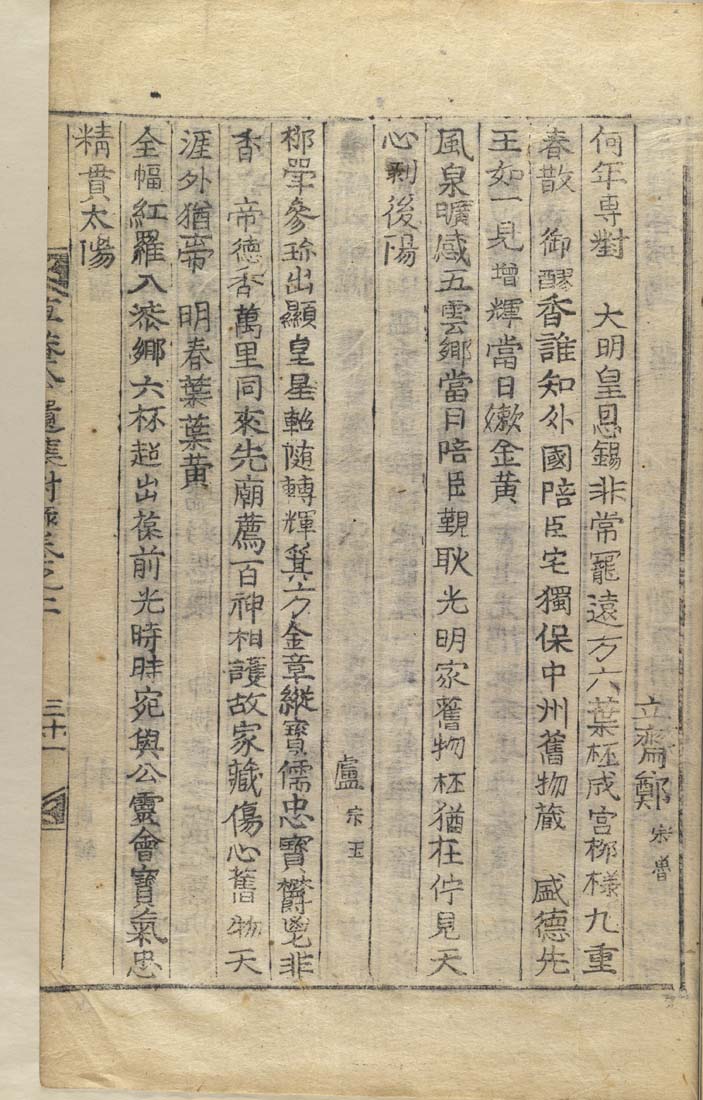 立齋鄭宗魯
何年專對　大明皇恩錫非常寵遠方六葉杯成宮梛樣九重
春散　御醪香誰知外國陪臣宅獨保中州舊物藏　盛德先
王如一見增輝當日嫰金黄
風泉曠感五雲鄉當日陪臣覲耿光明家舊物杯猶在佇見天
心剥後陽
盧宗玉
梛𣠽參珎出顯皇星軺随轉輝箕方金章縱寶儒忠寶欝鬯非
香　帝德香萬里同來先廟薦百神相護故家藏傷心舊物天
涯外猶帝　明春葉葉黄
全幅紅羅入漆鄉六杯起出葆前光時時宛與公靈會寶氣忠
精貫太陽
直菴公遺集附錄卷之二　三十一